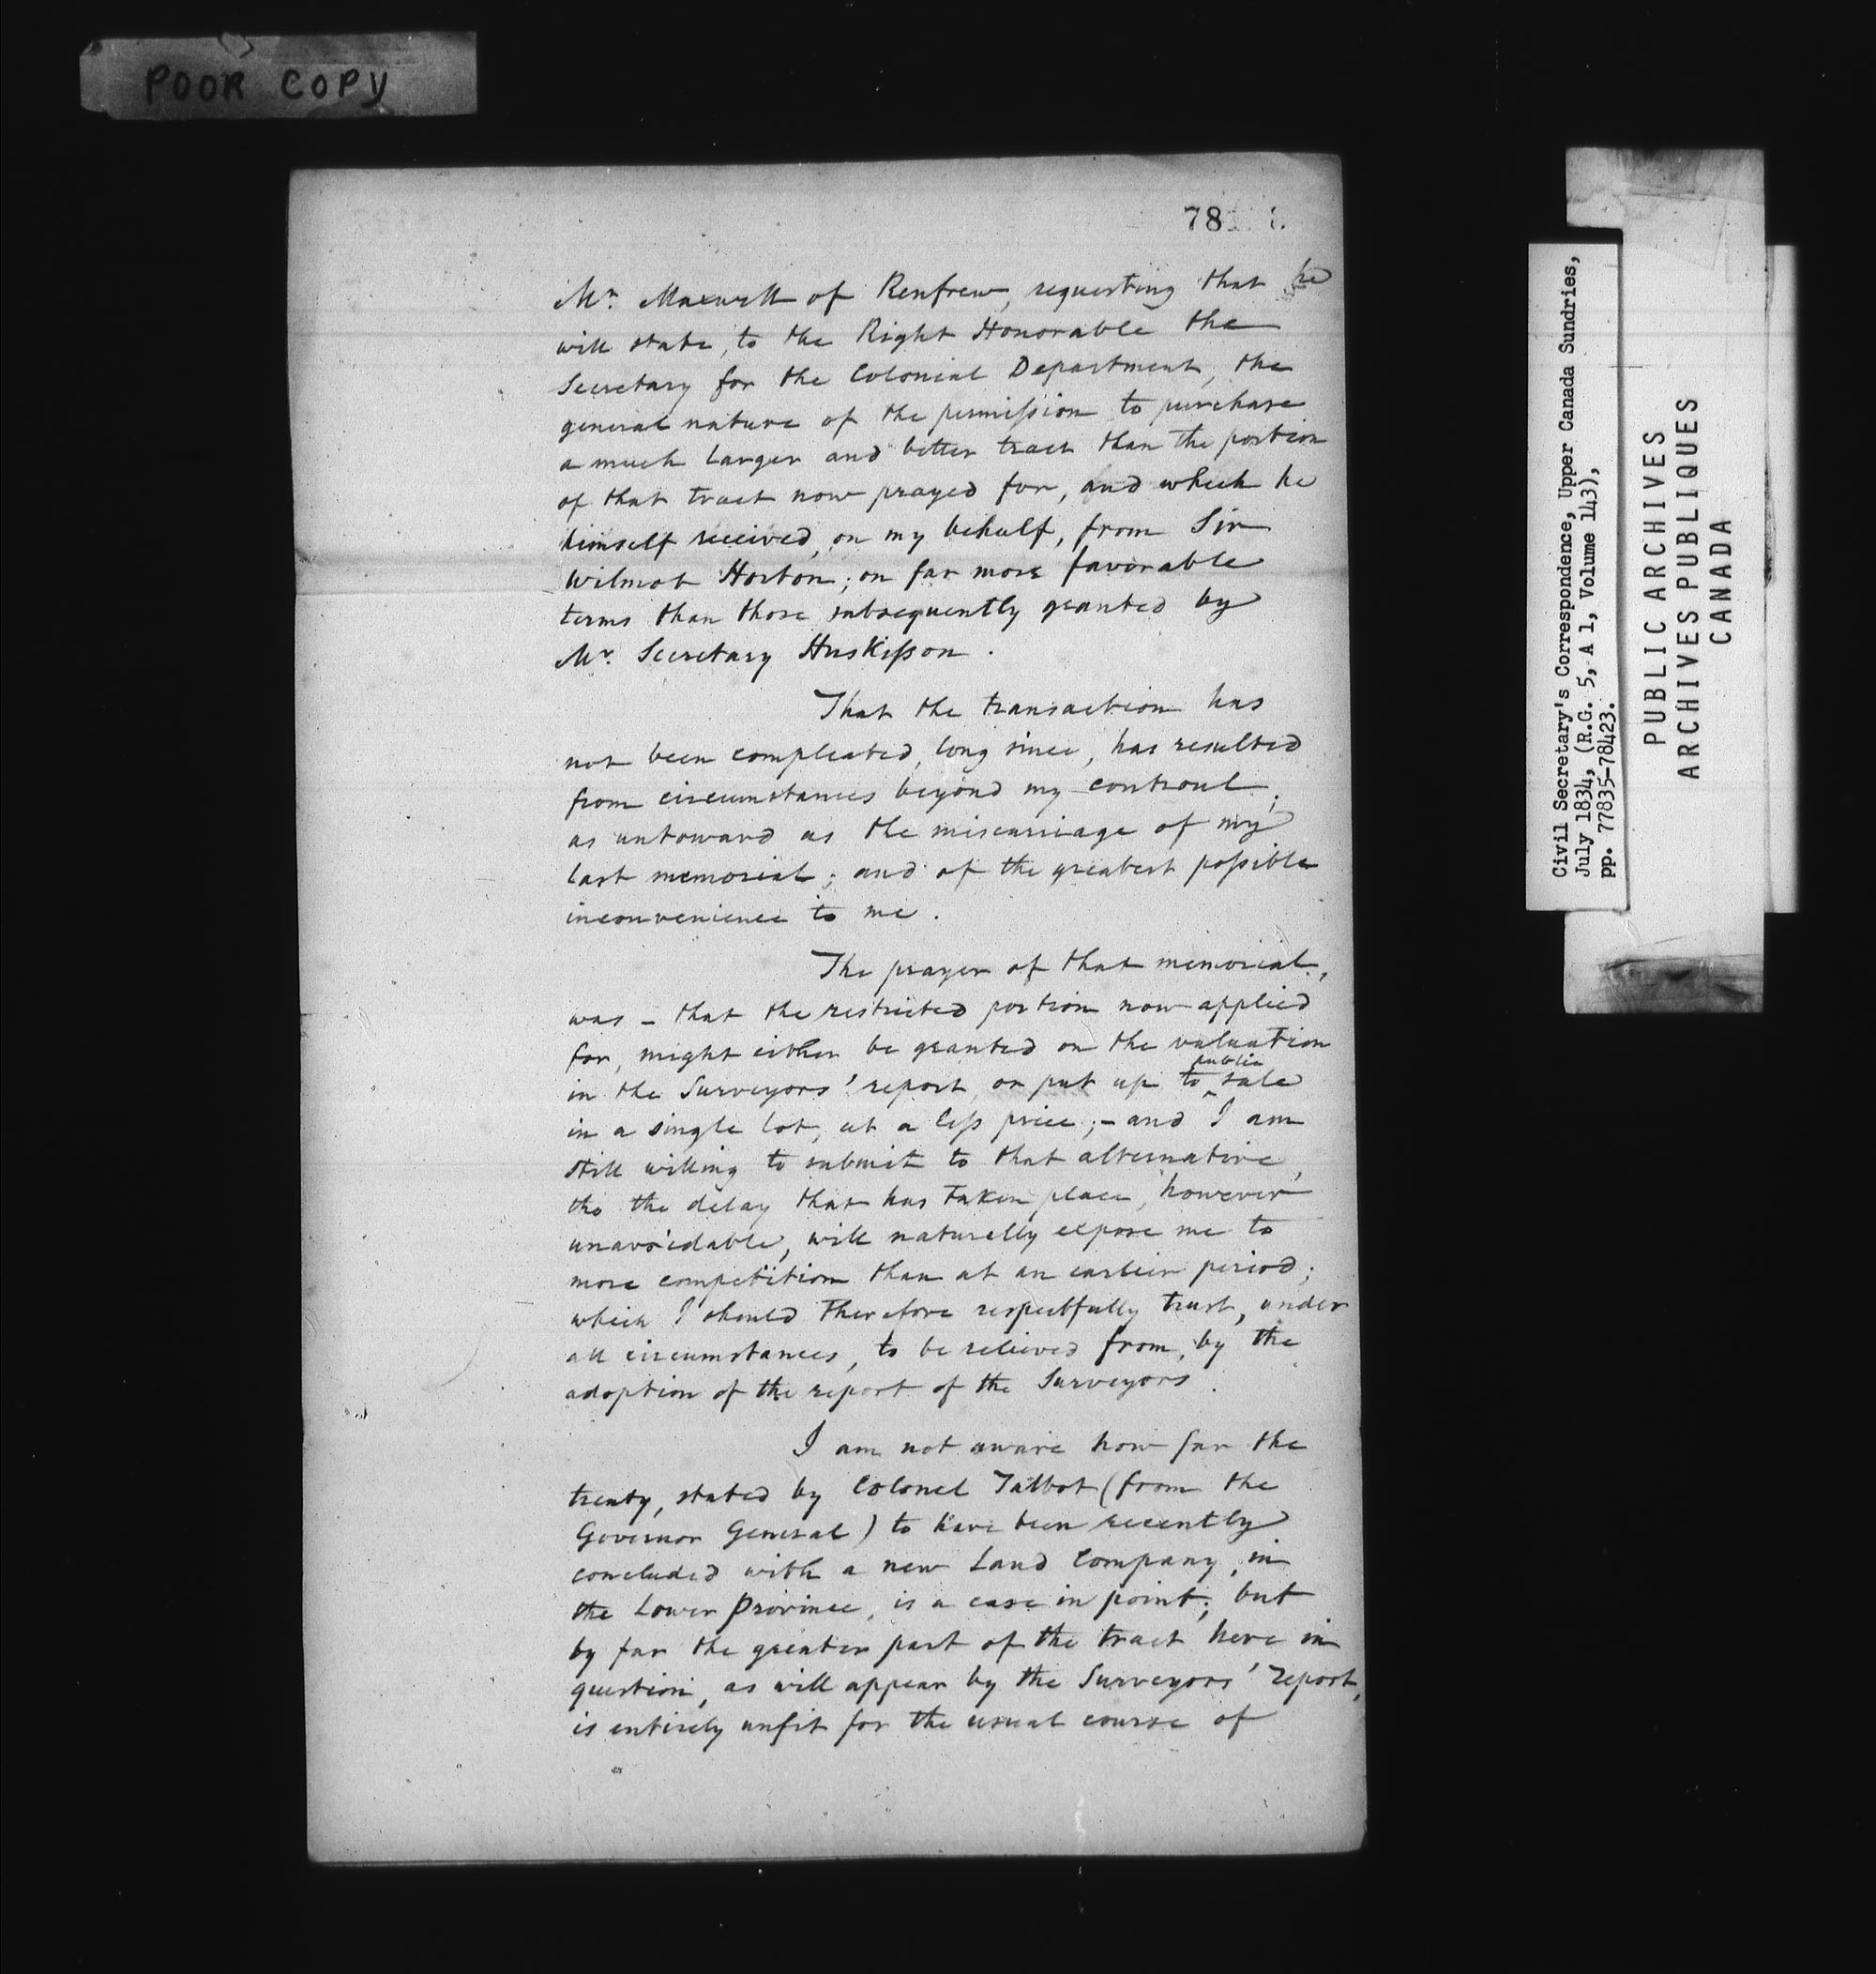 POOR COPY
78
Mr. Maxwell of Renfrew, requesting that he
will state, to the Right Honorable the
Secretary for the Colonial Department, the
general nature of the permission to purchase
a much larger and better tract than the portion
of that tract now prayed for, and which he
himself received, on my behalf, from Sir
Wilmot Horton; on far more favorable
terms than those subsequently granted by
Mr. Secretary Huskisson.
That the transaction has
not been compleated, long since, has resulted
from circumstances beyond my controul;
as untoward as the miscarriage of my
last memorial; and of the greatest possible
inconvenience to me.
The prayer of that memorial,
was - that the restricted portion now applied
for, might either be granted on the valuation
in the Surveyors' report, or put up to public sale
in a single lot, at a less price; - and I am
still willing to submit to that alternative,
tho the delay that has taken place, however
unavoidable, will naturally expose me to
more competition than at an earlier period;
which I should therefore respectfully trust, under
all circumstances, to be relieved from, by the
adoption of the report of the Surveyors.
I am not aware how far the
treaty, stated by Colonel Talbot (from the
Governor General) to have been recently
concluded with a new Land Company, in
the Lower Province, is a case in point; but
by far the greater part of the tract here in
question, as will appear by the Surveyors' report,
is entirely unfit for the usual course of
Civil Secretary's Correspondence, Upper Canada Sundries,
July 1834, (R.G. 5, A 1, Volume 143),
pp. 77835-78423.
PUBLIC ARCHIVES
ARCHIVES PUBLIQUES
CANADA